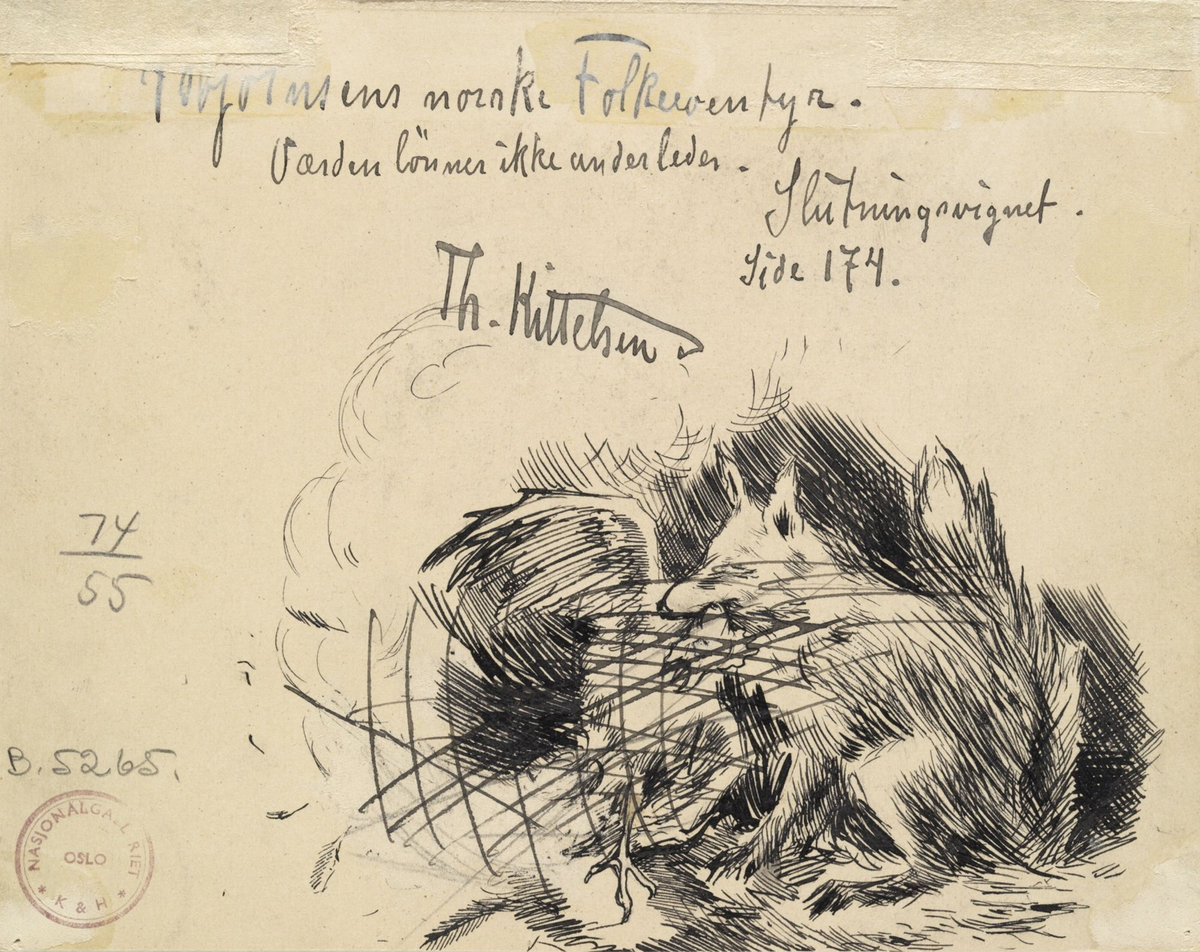 Asbjørnsens norske Folkeeventyr.
Værden lönner ikke anderledes.
Slutningsvignet.
Side 174.
Th. Kittelsen
74
55
B. 5265.
NASJONALGALLERIET
OSLO
* K & H *